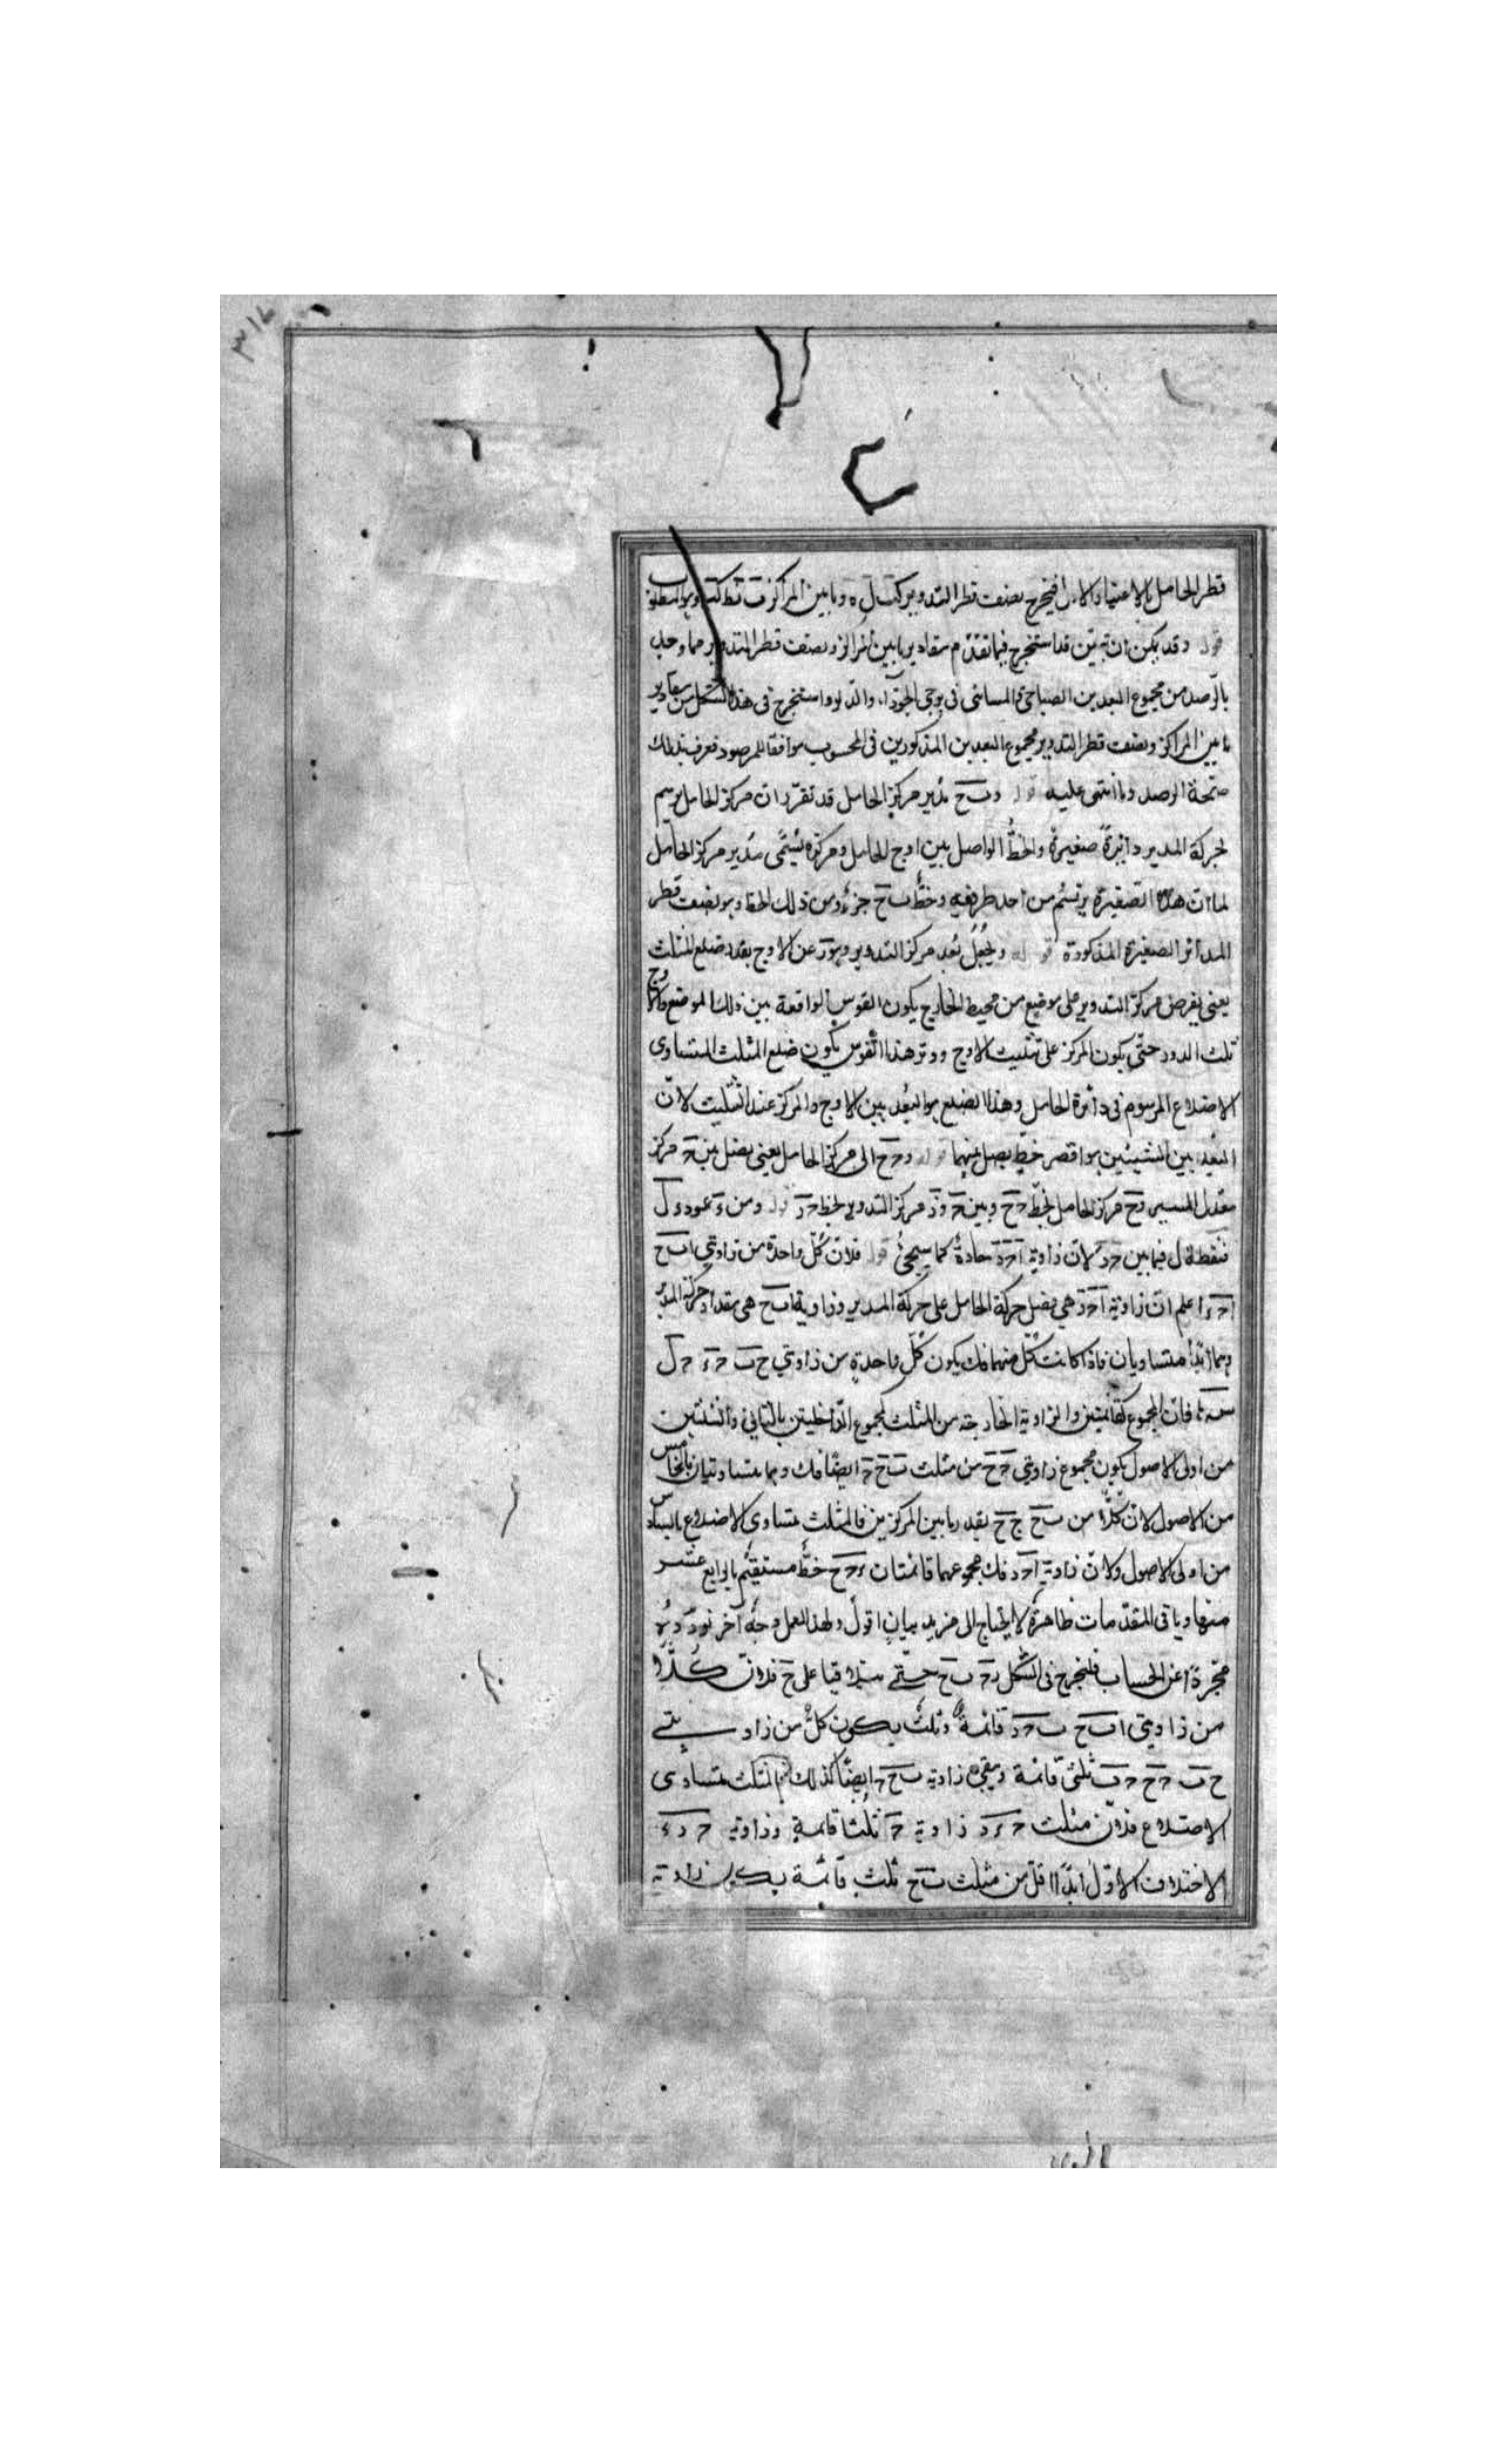 ٣١٦
قطر الحامل بالاعتبار الاول فيخرج نصف قطر التدوير كب ل ه وما بين المراكز وهو المطلوب
قوله وقد يمكن ان تبين قد استخرج فيما تقدم مقادير ما بين المراكز ونصف قطر التدوير مما وجد
بالرصد من مجموع البعدين الصباحي والمسائي في برجي الجوزاء والدلو واستخرج في هذا الشكل من مقادير
ما بين المراكز ونصف قطر التدوير مجموع البعدين المذكورين في المحسوب موافقا للمرصود فعرف بذلك
صحة الرصد وما انتهى عليه قوله و ب ح مدير مركز الحامل قد تقرر ان مركز الحامل يرسم
لحركة المدير دائرة صغيرة والخط الواصل بين اوج الحامل ومركزه يسمى مدير مركز الحامل
لما ان هذه الصغيرة يرتسم من احد طرفيه وخط ب ح جزء من ذلك الخط وهو نصف قطر
المدائر الصغيرة المذكورة قوله ويجعل بعد مركز التدوير وهو ر عن الاوج بقدر ضلع المثلث
يعني يفرض مركز التدوير على موضع من محيط الخارج يكون القوس الواقعة بين ذلك الموضع والاوج
ثلث الدور حتى يكون المركز على تثليث الاوج ووتر هذا القوس يكون ضلع المثلث المتساوي
الاضلاع المرسوم في دائرة الحامل وهذا الضلع هو البعد بين الاوج والمركز عند التثليث لان
البعد بين الشيئين هو اقصر خط يصل بينهما قوله و ح ح الى مركز الحامل يعني يصل بين ح مركز
معدل المسير و ح مركز الحامل بخط ح ح وبين ح و د مركز التدوير بخط ح د قوله ومن ء عمود ء ل
فنقطة ل فيما بين ح د لان زاوية ا ح د حادة كما سيجئ قوله فلان كل واحدة من زاويتي ا ب ح
ا ح د اعلم ان زاوية ا ح د هي فضل حركة الحامل على حركة المدير وزاوية ا ب ح هي مقدار حركة المدير
وهما ابدا متساويان فاذا كانت كل منهما فك يكون كل واحدة من زاويتي ح ب ح ء ح ل
س فان المجموع كقائمتين والزاوية الخارجة من المثلث كمجموع الداخليتين بالثاني والثلثين
من اولى الاصول يكون مجموع زاويتي ح ح من مثلث ب ح ح ايضا فك وهما متساويتان بالخامس
من الاصول لان كلا من ب ح ح ح بقدر ما بين المركزين فالمثلث متساوي الاضلاع بالسادس
من اولى الاصول ولان زاوية ا ح د فك مجموعهما قائمتان ء ح ح خط مستقيم بالرابع عشر
منها وباقي المقدمات ظاهرة لا يحتاج الى مزيد بيان اقول ولهذا العمل وجه آخر نورده
مجردا عن الحساب فلنخرج في الشكل د ح ب ح حتى يتلاقيا على ح فلان كلا
من زاويتي ا ب ح ب ح د قائمة وثلث يكون كل من زاويتي
ح ب ح ح ح ب ثلثي قائمة ويبقى زاوية ب ح ح ايضا كذلك فالمثلث متساوي
الاضلاع فلان مثلث ح ء د زاوية ح ثلثا قائمة وزاوية ح د ء
الاختلاف الاول ابدا اقل من مثلث ب ح ثلث قائمة يكون زاوية